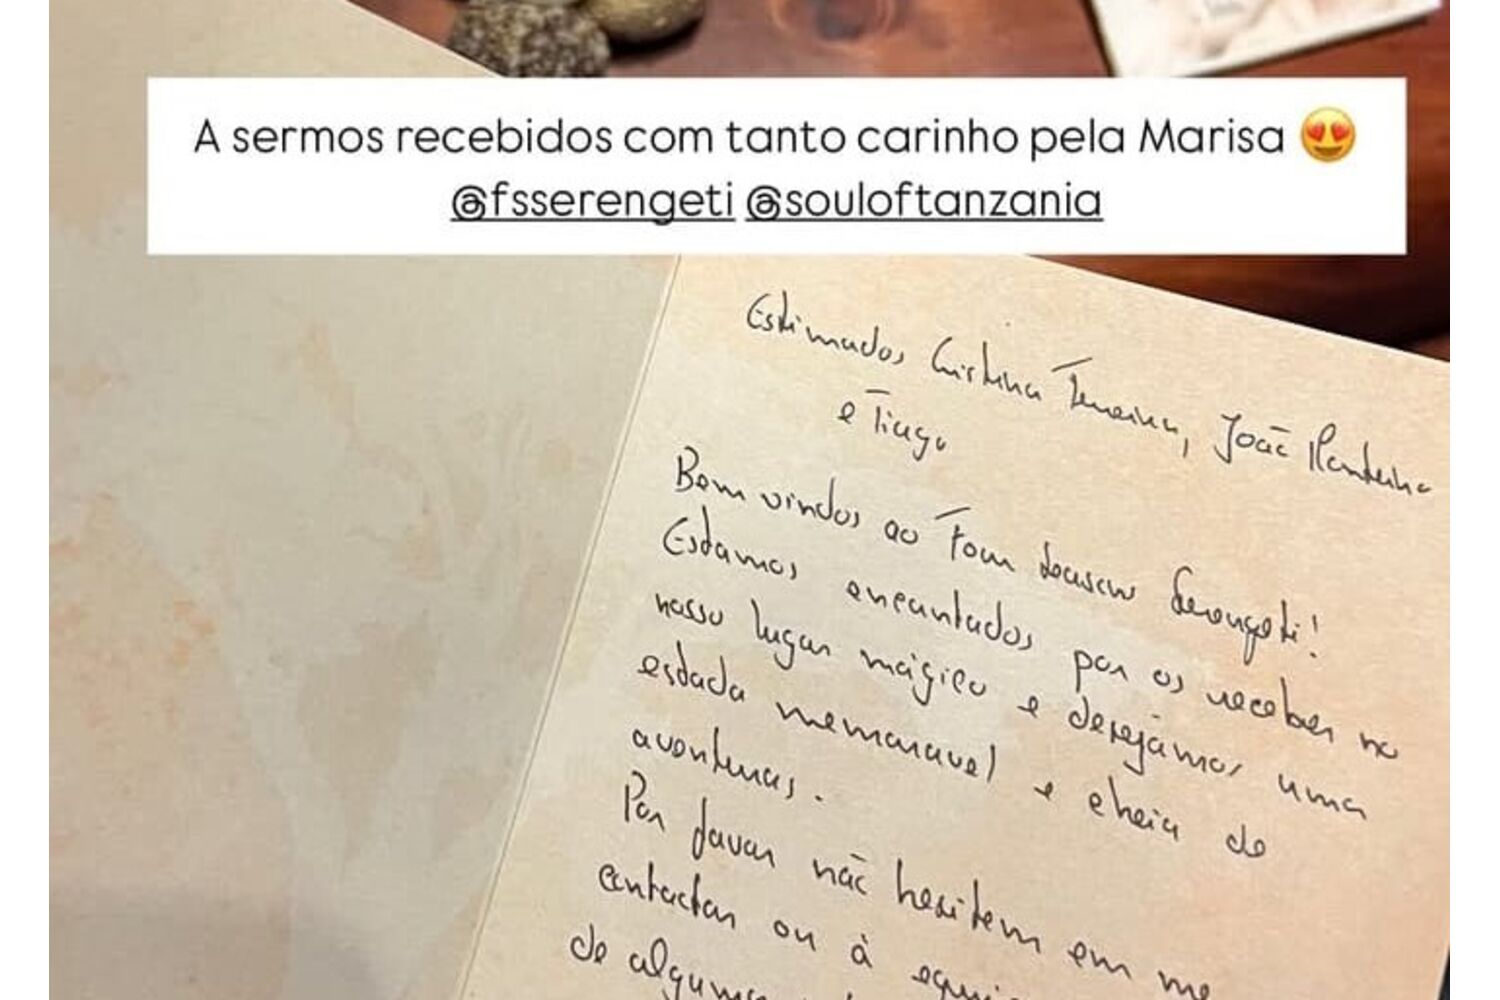 A sermos recebidos com tanto carinho pela Marisa 😍
@fsserengeti @souloftanzania
Estimados Cristina Ferreira, João Monteiro
e Tiago
Bem vindos ao Four Seasons Serengeti!
Estamos encantados por os receber no
nosso lugar mágico e desejamos uma
estada memoravel e cheia de
aventuras.
Por favor não hesitem em me
contactar ou à equipa
de alguma